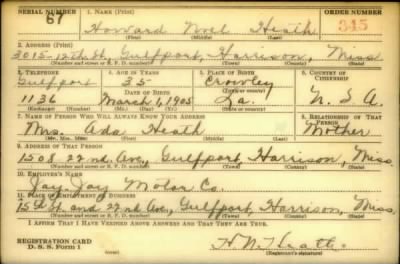 SERIAL NUMBER 1. NAME (Print) ORDER NUMBER
67 Howard Noel Heath 345
(First) (Middle) (Last)
2. ADDRESS (Print)
3015-12th St. Gulfport, Harrison, Miss.
(Number and street or R. F. D. number) (Town) (County) (State)
3. TELEPHONE 4. AGE IN YEARS 5. PLACE OF BIRTH 6. COUNTRY OF CITIZENSHIP
Gulfport 35 Crowley
DATE OF BIRTH (Town or county)
1136 March 1, 1905 La. U. S. A.
(Exchange) (Number) (Mo.) (Day) (Yr.) (State or country)
7. NAME OF PERSON WHO WILL ALWAYS KNOW YOUR ADDRESS 8. RELATIONSHIP OF THAT PERSON
Mrs. Ada Heath Mother
(Mr., Mrs., Miss) (First) (Middle) (Last)
9. ADDRESS OF THAT PERSON
1508 22nd Ave., Gulfport Harrison, Miss.
(Number and street or R. F. D. number) (Town) (County) (State)
10. EMPLOYER'S NAME
Jay-Jay Motor Co.
11. PLACE OF EMPLOYMENT OR BUSINESS
15th St. and 22nd Ave., Gulfport, Harrison, Miss.
(Number and street or R. F. D. number) (Town) (County) (State)
I AFFIRM THAT I HAVE VERIFIED ABOVE ANSWERS AND THAT THEY ARE TRUE.
REGISTRATION CARD
D. S. S. Form 1
H. N. Heath.
(Registrant's signature)